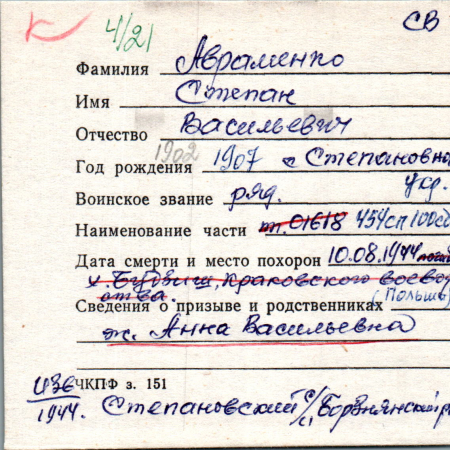 СВ
4/21
Фамилия Авраменко
Имя Степан
Отчество Васильевич
1902
Год рождения 1907 с Степановка
укр.
Воинское звание ряд.
Наименование части пп.01618 454сп 100сд
Дата смерти и место похорон 10.08.1944
Краковского воевод
ства.
(Польша)
Сведения о призыве и родственниках
ж. Анна Васильевна
ЧКПФ з. 151
изв
1944. Степановский с/с Борзнянский р